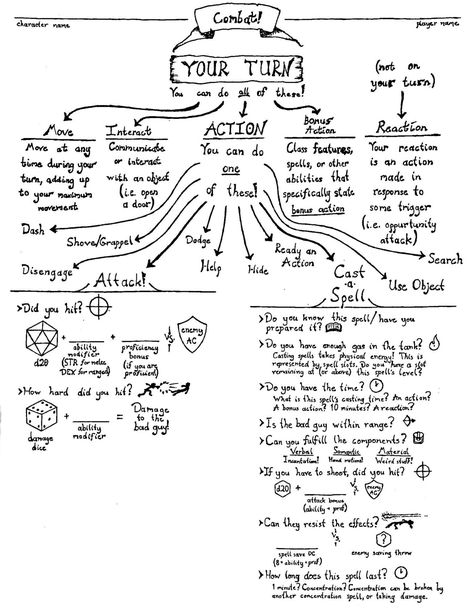 Combat!
character name
player name
YOUR TURN
You can do all of these!
(not on
your turn)
Move
Move at any
time during your
turn, adding up
to your maximum
movement
Interact
Communicate
or interact
with an object
(i.e. open
a door)
ACTION
You can do
one
of these!
Bonus
Action
Class features,
spells, or other
abilities that
specifically state
bonus action
Reaction
Your reaction
is an action
made in
response to
some trigger
(i.e. oppurtunity
attack)
Dash
Shove/Grappel
Disengage
Attack!
Dodge
Help
Hide
Ready an
Action
Cast
-a-
Spell
Use Object
Search
>Did you hit?
d20
+
ability
modifier
(STR for melee
DEX for ranged)
+
proficiency
bonus
(if you are
proficient)
vs
enemy
AC
>How hard did you hit?
damage
dice
+
ability
modifier
=
Damage
to the
bad guy!
>Do you know this spell/have you
prepared it?
>Do you have enough gas in the tank?
Casting spells takes physical energy! This is
represented by spell slots. Do you have a slot
remaining at (or above) this spell's level?
>Do you have the time?
What is this spell's casting time? An action?
A bonus action? 10 minutes? A reaction?
>Is the bad guy within range?
>Can you fulfill the components?
Verbal
Incantation!
Somatic
Hand motions!
Material
Weird stuff!
>If you have to shoot, did you hit?
d20
+
attack bonus
(ability + prof)
vs
enemy
AC
>Can they resist the effects?
spell save DC
(8+ability+prof)
vs
?
enemy saving throw
>How long does this spell last?
1 minute? Concentration? Concentration can be broken by
another concentration spell, or taking damage.